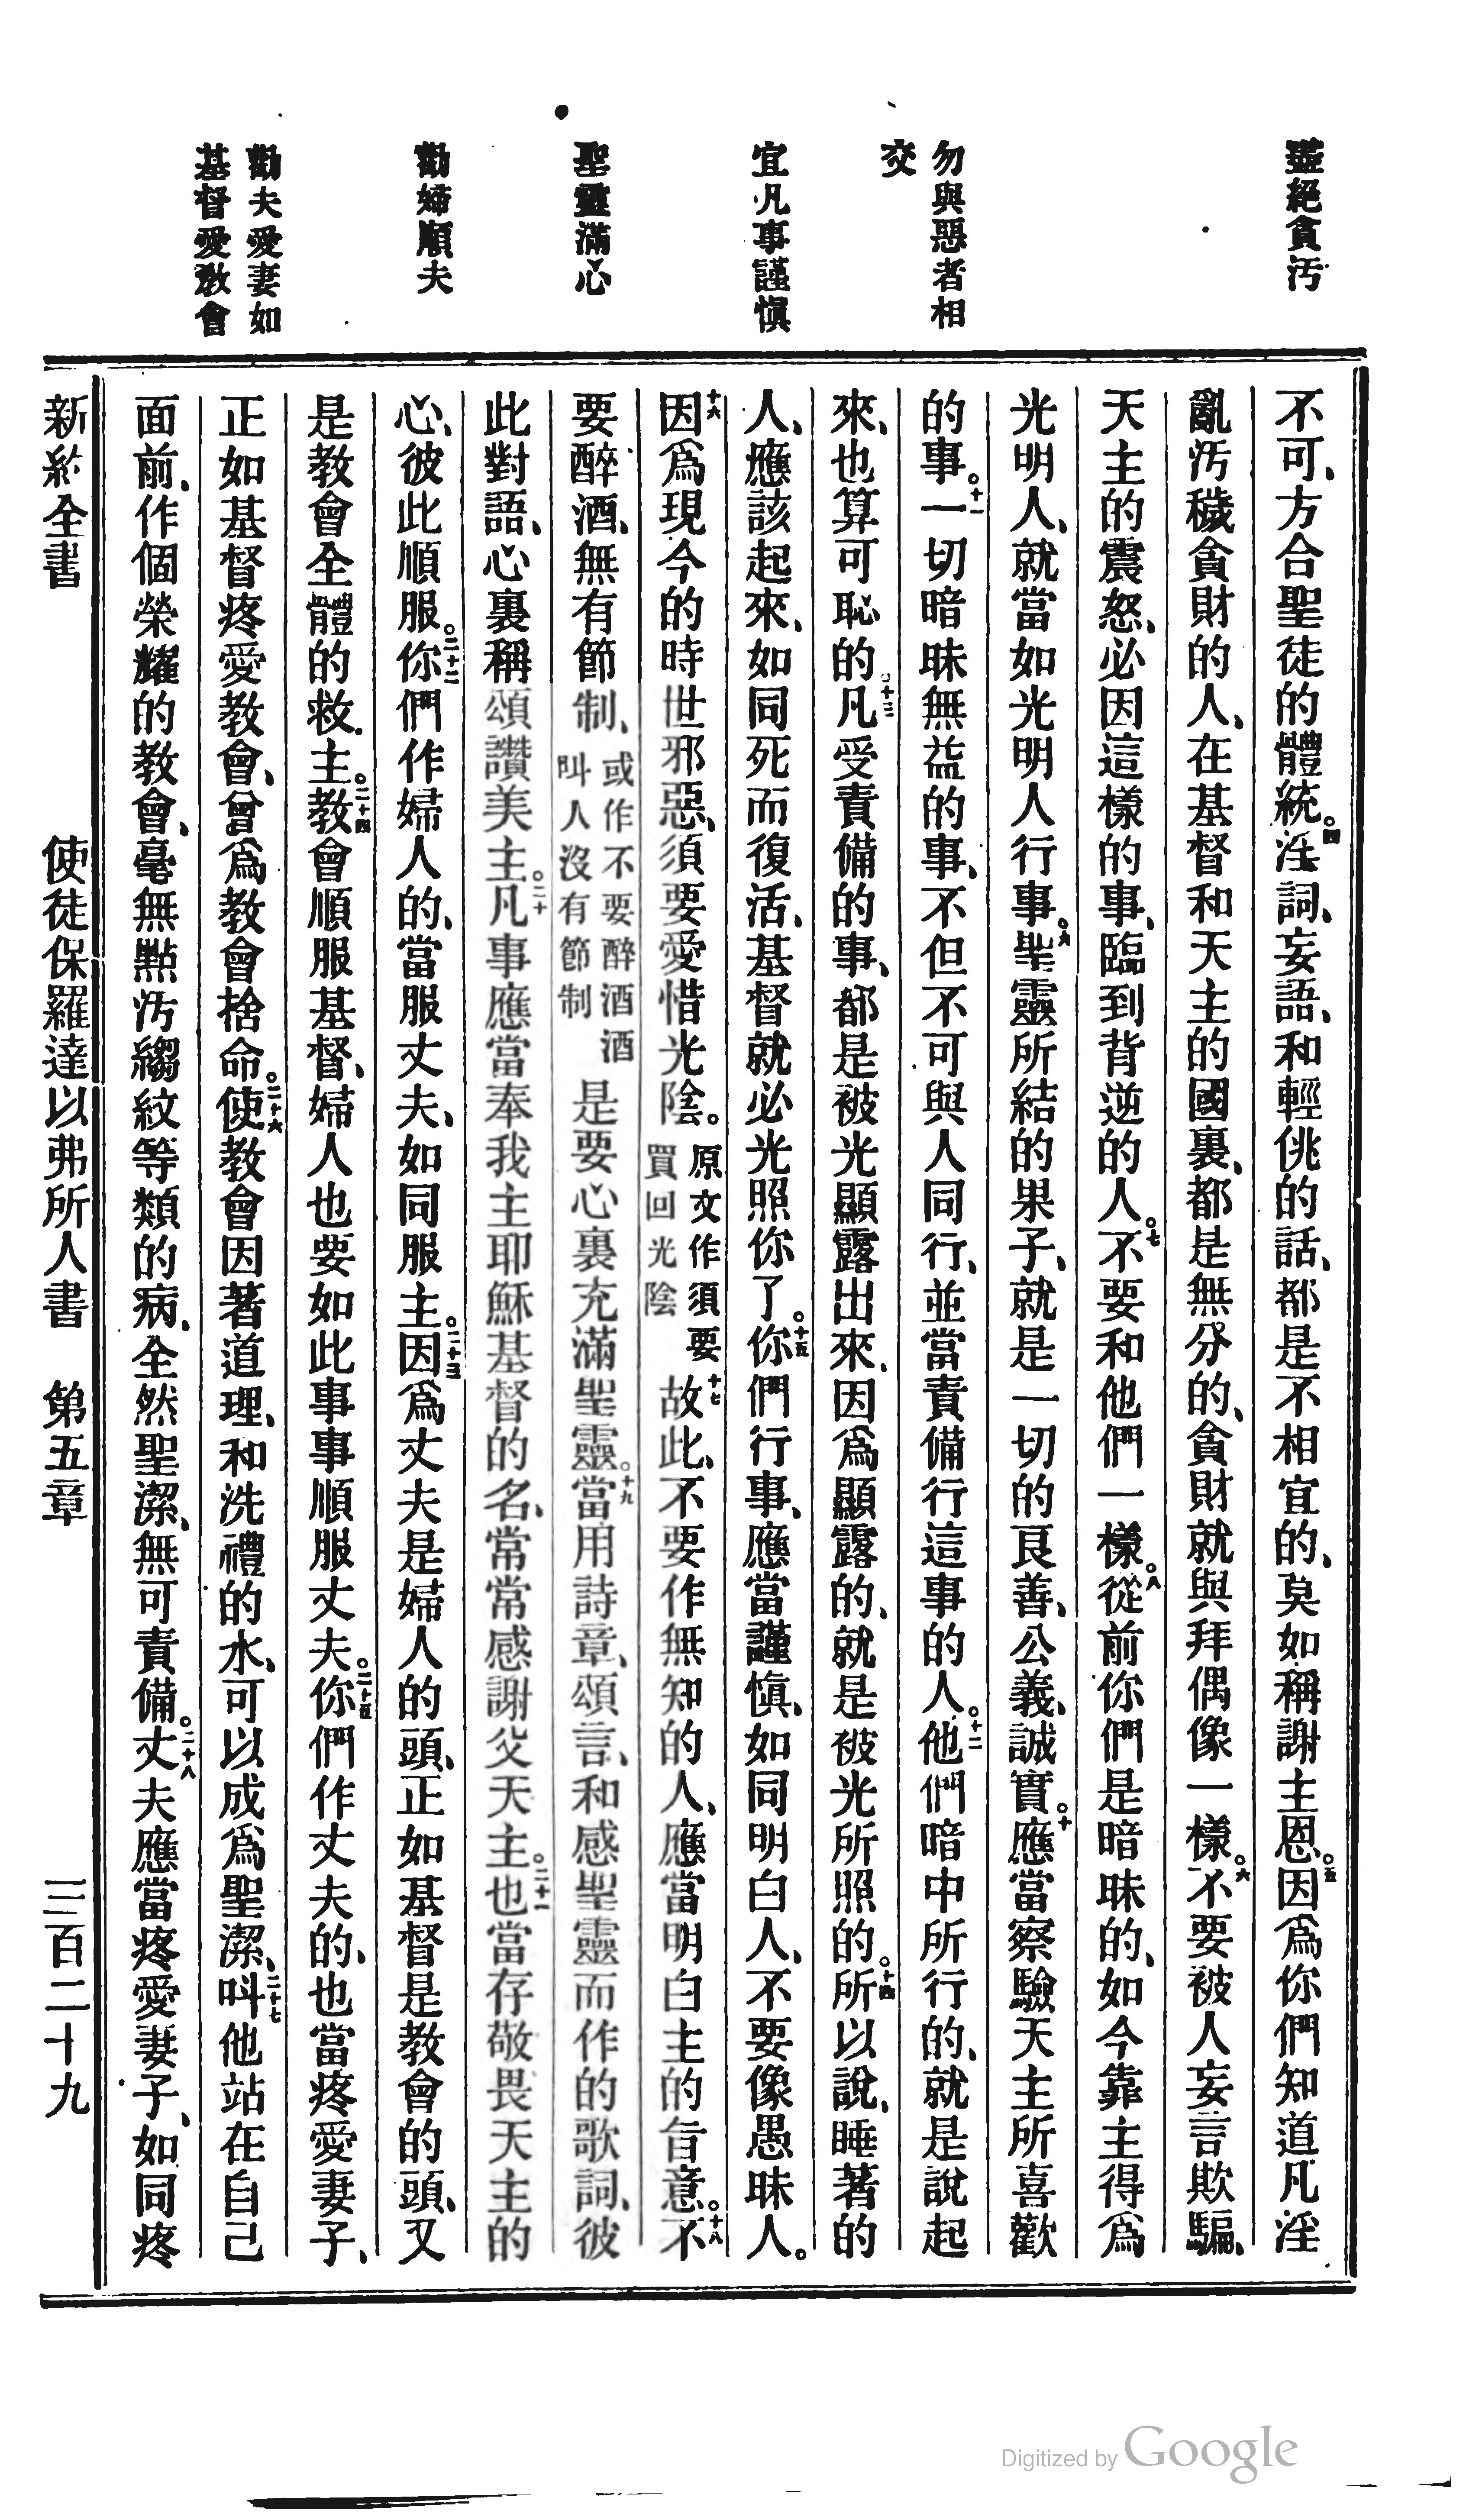 盡絕貪汚
勿與惡者相
交
宜凡事謹愼
聖靈滿心
勸婦順夫
勸夫愛妻如
基督愛敎會
不可、方合聖徒的體統。四淫詞、妄語、和輕佻的話、都是不相宜的、莫如稱謝主恩。五因爲你們知道凡淫
亂汚穢貪財的人、在基督和天主的國裏、都是無分的、貪財就與拜偶像一樣。六不要被人妄言欺騙、
天主的震怒、必因這樣的事、臨到背逆的人。七不要和他們一樣。八從前你們是暗昧的、如今靠主得爲
光明人、就當如光明人行事。九聖靈所結的果子、就是一切的良善、公義、誠實。十應當察驗天主所喜歡
的事。十一一切暗昧無益的事、不但不可與人同行、並當責備行這事的人。十二他們暗中所行的、就是說起
來、也算可恥的。十三凡受責備的事、都是被光顯露出來、因爲顯露的、就是被光所照的。十四所以說、睡著的
人、應該起來、如同死而復活、基督就必光照你了。十五你們行事、應當謹愼、如同明白人、不要像愚昧人。
十六因爲現今的時世邪惡、須要愛惜光陰。原文作須要買回光陰十七故此、不要作無知的人、應當明白主的旨意。十八不
要醉酒、無有節制、或作不要醉酒酒叫人沒有節制是要心裏充滿聖靈。十九當用詩章、頌言、和感聖靈而作的歌詞、彼
此對語、心裏稱頌讚美主。二十凡事應當奉我主耶穌基督的名、常常感謝父天主。二十一也當存敬畏天主的
心、彼此順服。二十二你們作婦人的、當服丈夫、如同服主。二十三因爲丈夫是婦人的頭、正如基督是教會的頭、又
是教會全體的救主。二十四教會順服基督、婦人也要如此事事順服丈夫。二十五你們作丈夫的、也當疼愛妻子、
正如基督疼愛教會、曾爲教會捨命。二十六使教會因著道理、和洗禮的水、可以成爲聖潔、二十七呌他站在自己
面前、作個榮耀的教會、毫無點汚縐紋等類的病、全然聖潔、無可責備。二十八丈夫應當疼愛妻子、如同疼
新約全書 使徒保羅達以弗所人書 第五章 三百二十九
Digitized by Google